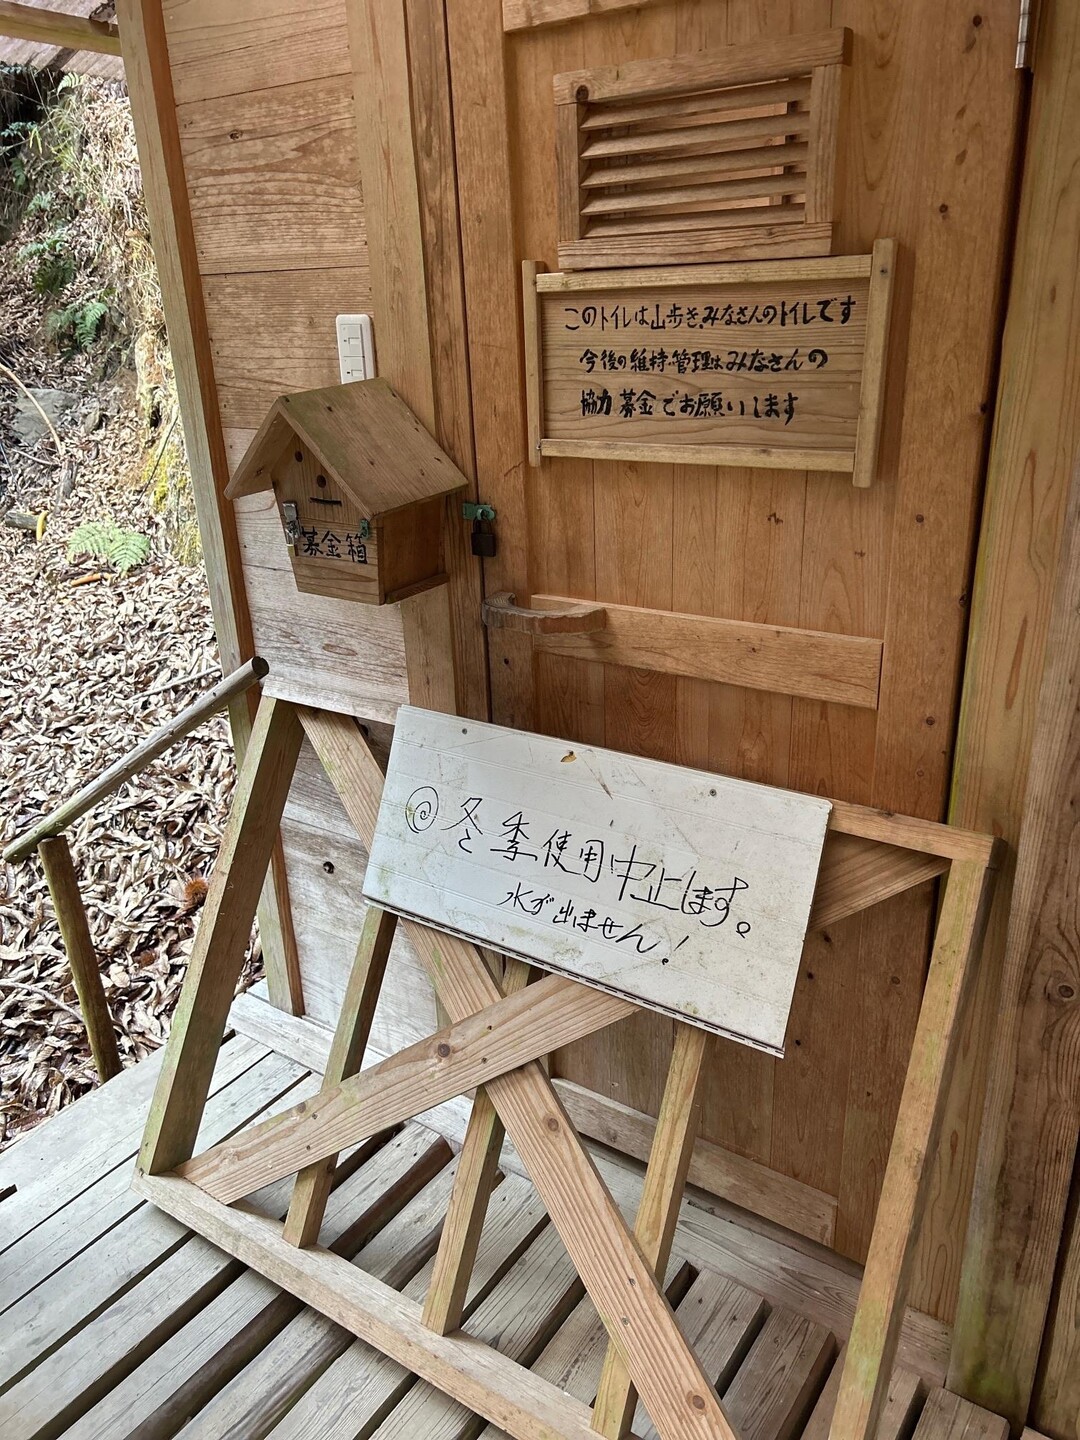 このトイレは山歩き、みなさんのトイレです
今後の維持・管理はみなさんの
協力募金でお願いします
募金箱
冬季使用中止します。
水が出ません！